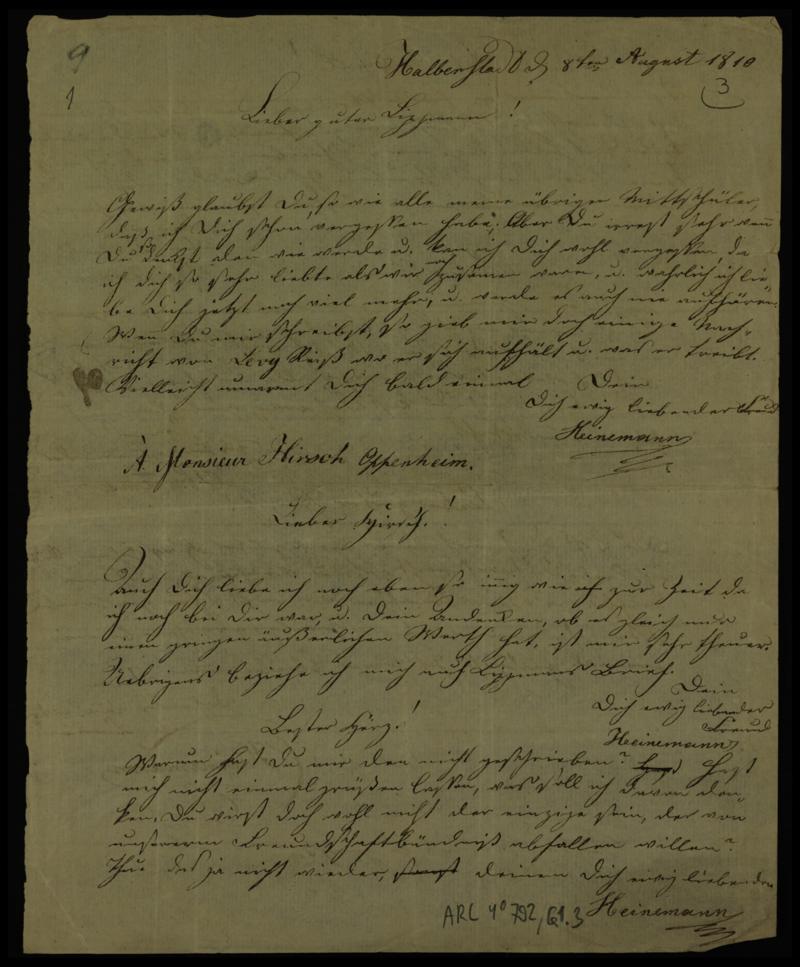 9
1
Halberstadt d 8ten August 1810
3
Lieber guter Lippmann!
Gewiß glaubst Du, so wie alle meine übrigen Mittschüler,
daß ich Dich schon vergessen habe; Aber Du irrest sehr wenn
Du denkst u. kan ich Dich wohl vergessen, da
ich dich so sehr liebte als wir noch zusamen waren, u. wahrlich ich lie
be Dich jetzt noch viel mehr, u. werde es auch nie aufhören.
Wen Du mir schreibst, so gieb mir doch einige Nach-
richt von Levy Reiß wo er sich aufhält u. was er treibt.
Vielleicht umarmt Dich bald einmal Dein
Dich ewig liebender Freund
Heinemann
À Monsieur Hirsch Oppenheim.
Lieber Hirsch!
Auch Dich liebe ich noch eben so innig wie zur Zeit da
ich noch bei Dir war, u. Dein Andenken, ob es gleich nur
einen geringen äußerlichen Werth hat, ist mir sehr theuer.
Uebrigens beziehe ich mich auf Lippmans Brief.
Dein
Dich ewig liebender
Freund
Heinemann
Bester Herz!
Warum hast Du mir den nicht geschrieben? Hast
mich nicht einmal grüßen lassen, was soll ich davon den-
ken, Du wirst doch wohl nicht der einzige sein, der von
unserem Freundschaftbündniß abfallen willen?
Thue das ja nicht wieder, deinen Dich ewig liebenden
Heinemann
ARC 4° 792, G1.3